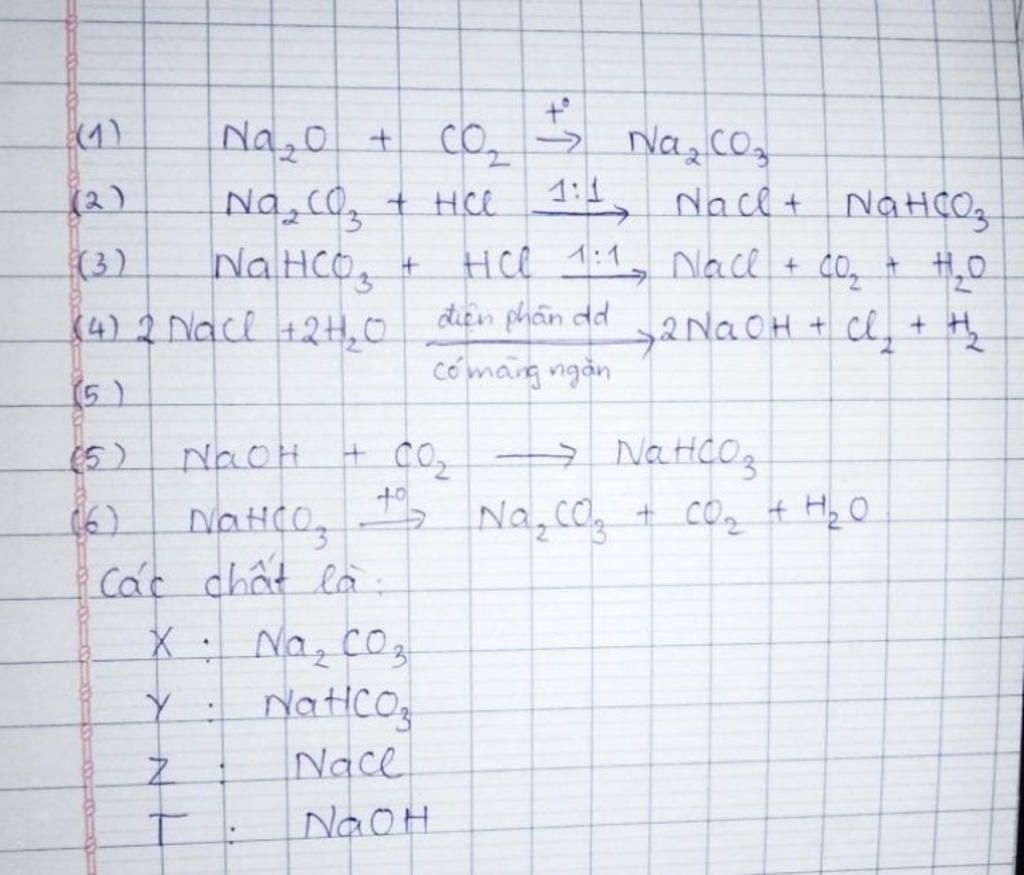 (1) Na₂O + CO₂ —t°→ Na₂CO₃
(2) Na₂CO₃ + HCl —1:1→ NaCl + NaHCO₃
(3) NaHCO₃ + HCl —1:1→ NaCl + CO₂ + H₂O
(4) 2NaCl + 2H₂O —điện phân dd→ 2NaOH + Cl₂ + H₂
có màng ngăn
(5)
(5) NaOH + CO₂ → NaHCO₃
(6) NaHCO₃ —t°→ Na₂CO₃ + CO₂ + H₂O
Các chất là:
X : Na₂CO₃
Y : NaHCO₃
Z : NaCl
T : NaOH